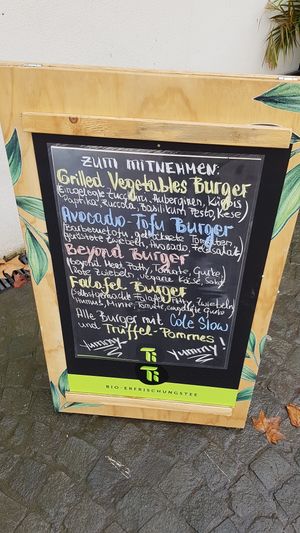 ZUM MITNEHMEN:
Grilled Vegetables Burger
(Eingelegte Zucchini, Auberginen, Kürbis
Paprika, Rucola, Basilikum Pesto, Käse)
Avocado-Tofu Burger
Tomaten,
Zwiebeln, Avocado, Feldsalat)
Beyond Burger
(Beyond Meat Patty, Tomate, Gurke,
Rote Zwiebeln, vegane Käse, Salat)
Falafel Burger
(Selbstgemachte Falafel Patty, Zwiebeln
Humus, Minze, Tomate, eingelegte Gurke)
Alle Burger mit Cole Slow
und Trüffel-Pommes
yummy
yummy!
Ti
Ti
BIO-ERFRISCHUNGSTEE